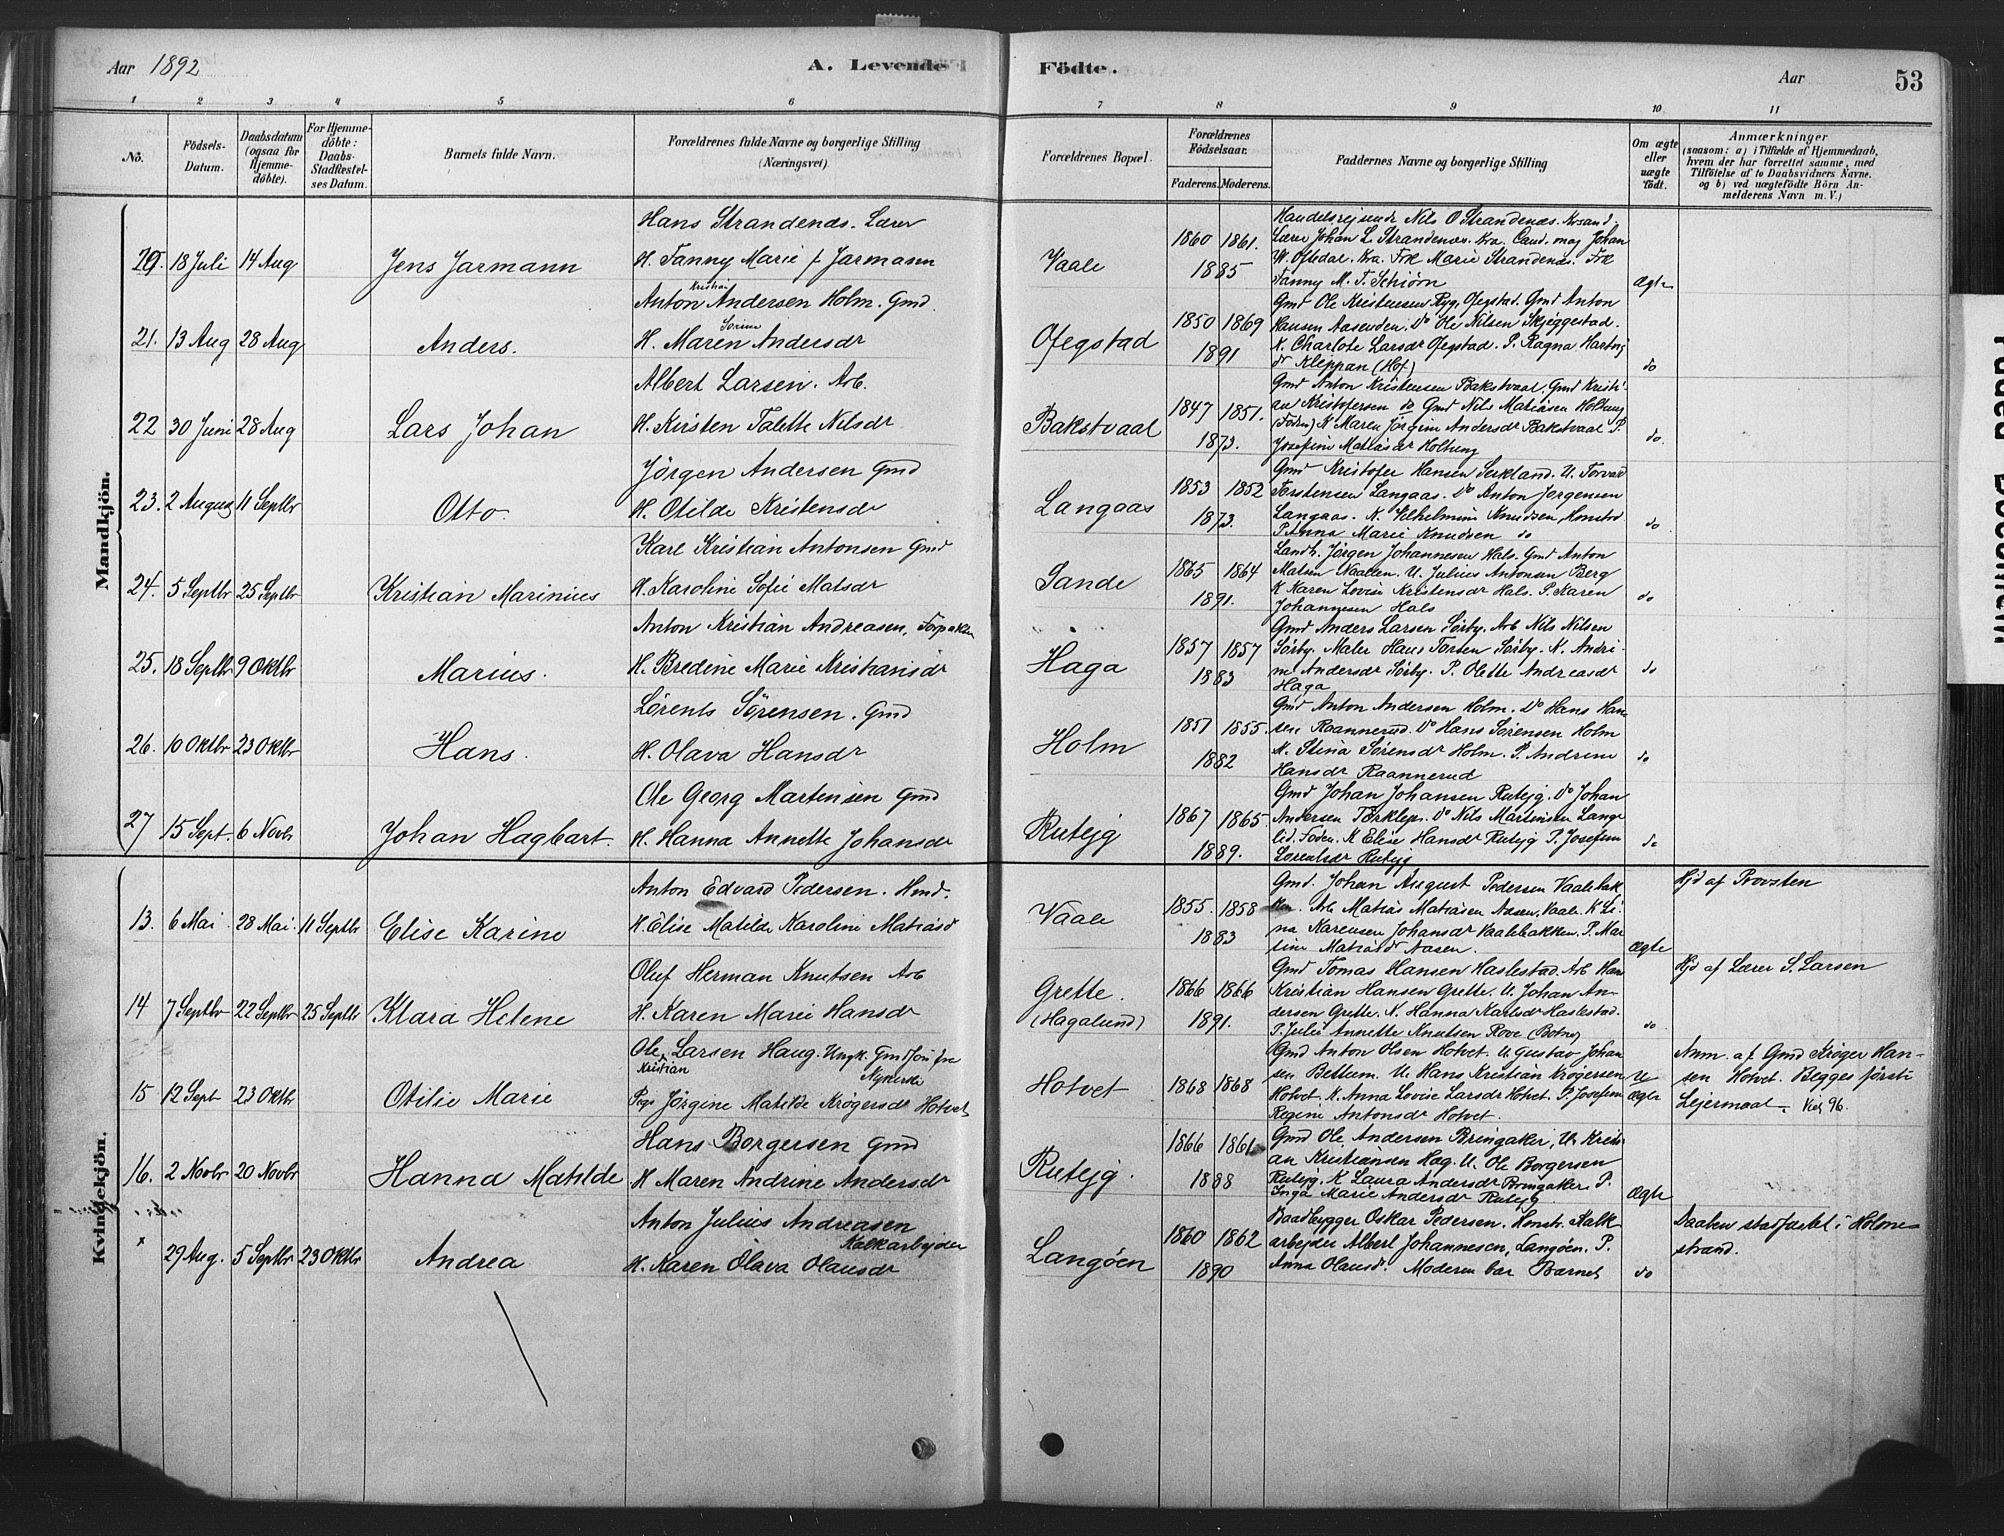 Aar 1892
A. Levende Födte.
Aar
53
1 2 3 4 5 6 7 8 9 10 11
No.
Födsels-Datum.
Daabsdatum (ogsaa for Hjemme-döbte).
For Hjemme-döbte: Daabs-Stadfæstel-ses Datum.
Barnets fulde Navn.
Forældrenes fulde Navne og borgerlige Stilling (Næringsvei).
Forældrenes Bopæl.
Forældrenes Födselsaar.
Faderens. Moderens.
Faddernes Navne og borgerlige Stilling
Om ægte eller uægte födt.
Anmærkninger
(saasom: a) i Tilfælde af Hjemmedaab, hvem der har forrettet samme, med Tilföielse af to Daabsvidners Navne, og b) ved uægtefödte Börn An-melderens Navn m. V.)
Mandkjön.
Hans Strandenæs. Lærer
20. 18 Juli 14 Aug Jens Jarmann H. Fanny Marie f Jarmann
Vaale 1860 1861. 1885
Handelsrejsende Nils O Strandenæs. Krsand.
Lærer Johan L. Strandenæs. Kra. Cand. mag Johan
W. Oftedal. Kra. Frk Marie Strandenæs. Frk
Fanny M. T. Schiörn
Ægte
Anton Kristian Andersen Holm. Gmd
21. 13 Aug 28 Aug Anders. H. Maren Sorine Andersdr
Ofegstad 1850 1869 1891
Gmd Ole Kristensen Ryg, Ofegstad. Gmd Anton
Hansen Aasenden. Do Ole Nilsen Skjeggestad.
K. Charlote Larsdr Ofegstad. P. Ragna Hartvig
dr Kleppan (Hof)
do
Albert Larsen. Arb.
22 30 Juni 28 Aug Lars Johan H. Kirsten Talette Nilsdr
Bakstvaal 1847 1851. 1873.
Gmd Anton Kristensen Bakstvaal, Gmd Kristi-
an Kristofersen do Gmd Nils Matiasen Holtung
(Foden) K Maren Jörgine Andersdr Bakstvaal P.
Josefine Matiasdr Holtung
do.
Jörgen Andersen Gmd
23. 2 August 11 Septbr Otto. H. Otilde Kristensdr
Langaas 1853 1852 1873.
Gmd Kristofer Hansen Serkland. U. Torvar
Torstensen Langaas. Do Anton Jorgensen
Langaas. K. Vilhelmine Knudsen, Honstad
P. Anna Marie Knudsen do
do
Karl Kristian Antonsen Gmd
24. 5 Septbr 25 Septbr Kristian Marinius H. Karoline Sofie Matsdr
Sande 1865 1864 1891.
Landh. Jörgen Johannesen Hals. Gmd Anton
Matsen Naalen. U. Julius Antonsen Berg
K Karen Lovise Kristensdr Hals. P. Karen
Johannesen Hals
do
Anton Kristian Andreasen, Forpakter
25. 18 Septbr 9 Oktbr Marius. H. Bredine Marie Kristiansdr
Haga 1857 1857 1883
Gmd Anders Larsen Sörby. Arb Nils Nilsen
Sörby. Maler Hans Torsten Sörby. K. Andri-
ne Andersdr Sörby. P. Olette Andreasdr
Haga
do
Lörents Sörensen. Gmd
26. 10 Oktbr 23 Oktbr Hans. H. Olava Hansdr
Holm 1851 1855. 1882
Gmd Anton Andersen Holm. Do Hans Han-
sen Raannerud. Do Hans Sörensen Holm
K. Stina Sörensdr Holm. P. Andrine
Hansdr Raannerud
do
Ole Georg Martensen Gmd
27 15 Sept. 6 Novbr Johan Hagbart. H. Hanna Annette Johansdr
Rutejg 1867 1865. 1889.
Gmd Johan Johansen Rutejg. Do Johan
Andersen Törklep. Do Nils Martinsen Lange
lid. Foden. K Elise Hansdr Rutejg P. Josefine
Lorentsdr Rutejg
do
Kvindekjön.
Anton Edvard Pedersen. Hmd.
13. 6 Mai 28 Mai 11 Septbr Elise Karine H. Elise Matilde Karoline Matiasd
Vaale 1855. 1858 1883
Gmd. Johan August Pedersen Vaalebak-
ken. Arb Matias Matiasen Aasen, Vaale. K Li-
na Karensen Johansdr Vaalebakken. P. Mar
tine Matiasdr Aasen.
Ægte
Hjd af Provsten
Oluf Herman Knutsen Arb
14 7 Septbr 22 Septbr 25 Septbr Klara Helene H. Karen Marie Hansdr
Grette. (Hagalund) 1866 1866 1891.
Gmd Tomas Hansen Haslestad. Arb Hans
Kristian Hansen Grette. U. Johan An-
dersen Grette. K. Hanna Karlsdr Haslestad.
P. Julie Annette Knutsen Rove (Botne)
do
Hjd af Lærer S. Larsen
Ole Kristian Larsen Haug. Ungk. Gmdsön fra Nykirke
15 12 Sept 23 Oktbr Otilie Marie Pige Jörgine Matilde Krögersdr Hotvet
Hotvet 1868 1868
Gmd Anton Olsen Hotvet. U Gustav Johan
sen Bettum. U. Hans Kristian Krögersen
Hotvet. K. Anna Lovise Larsdr Hotvet. P. Josefine
Regine Antonsdr Hotvet.
U ægte
Anm. af Gmd Kröger Han-
sen Hotvet. Begges förste
Lejermaal. Vied 96.
Hans Borgersen Gmd
16. 2 Novbr 20 Novbr Hanna Matilde H Maren Andrine Andersdr
Rutejg. 1866 1861 1888
Gmd Ole Andersen Bringaker, U. Kristi
an Kristiansen Hag. U. Ole Borgersen
Rutejg. K Laura Andersdr Bringaker. P.
Inga Marie Andersdr Rutejg
Ægte
Anton Julius Andreasen Kalkarbejder
x 29 Aug. 5 Septbr 23 Oktbr Andrea H. Karen Olava Olausdr
Langöen 1860 1862 1890
Baadbygger Oskar Pedersen. Honstr. Kalk-
arbejder Albert Johannesen, Langöen. P.
Anna Olausdr. Moderen bar Barnet
do
Daaben stadfæstet i Holme-
strand.